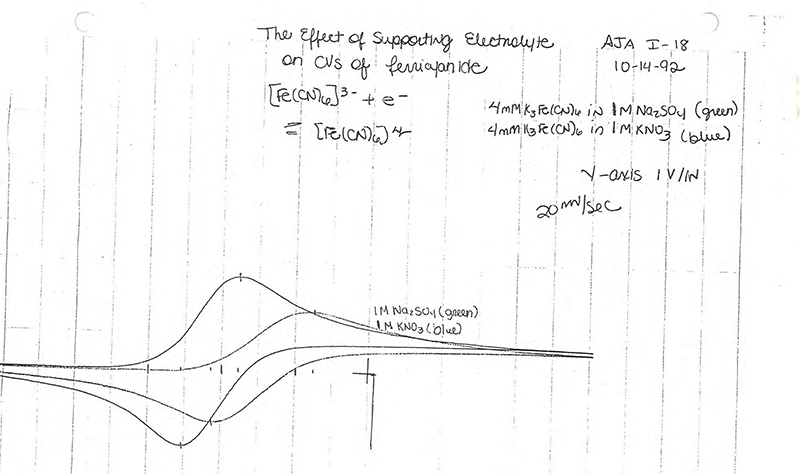 The Effect of Supporting Electrolyte
on CVs of ferricyanide
AJA I-18
10-14-92
[Fe(CN)6]3- + e-
= [Fe(CN)6]4-
4mM K3Fe(CN)6 in 1M Na2SO4 (green)
4mM K3Fe(CN)6 in 1M KNO3 (blue)
Y-axis 1 V/IN
20 mV/sec
1M Na2SO4 (green)
1M KNO3 (blue)